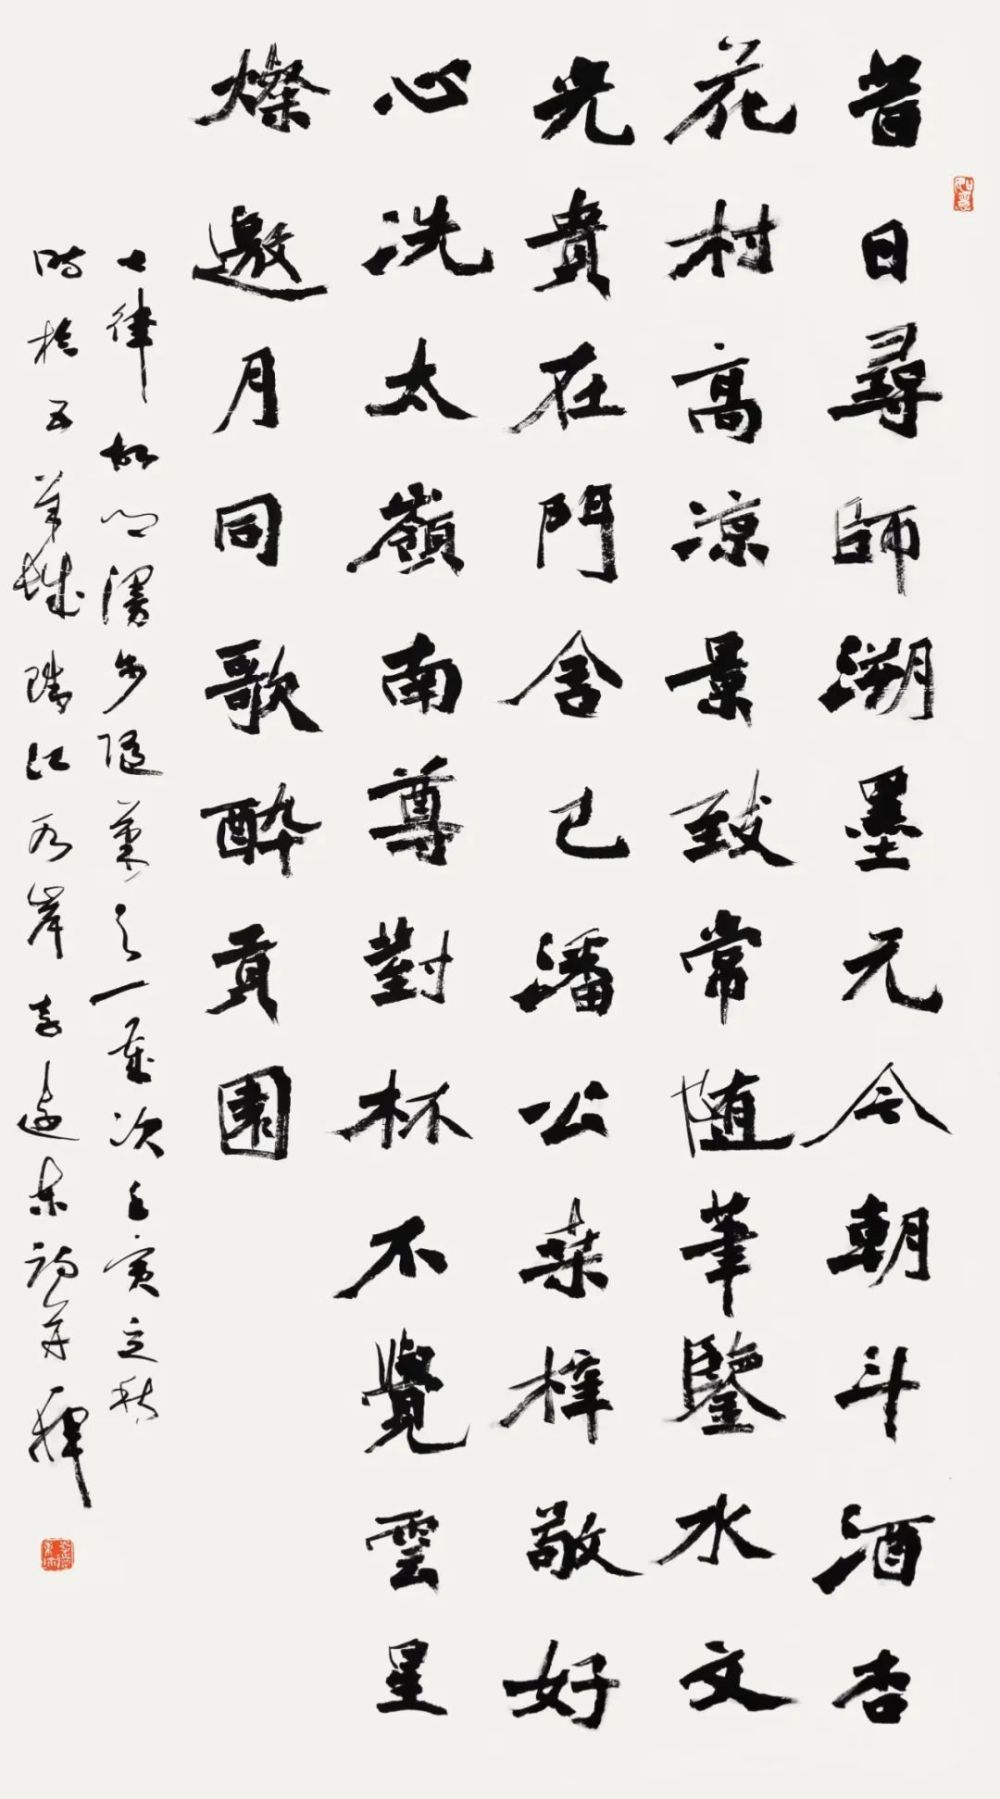 昔日尋師溯墨元今朝斗酒杏
花村高凉景致常随筆鑒水文
光貴在門舍己潘公桒梓敬好
心洗太嶺南尊對杯不覺雲星
燦邀月同歌醉貢園
七律 漫步隨菓之一首次壬寅之秋
時於五羊城珠江西岸李遠東詩并揮